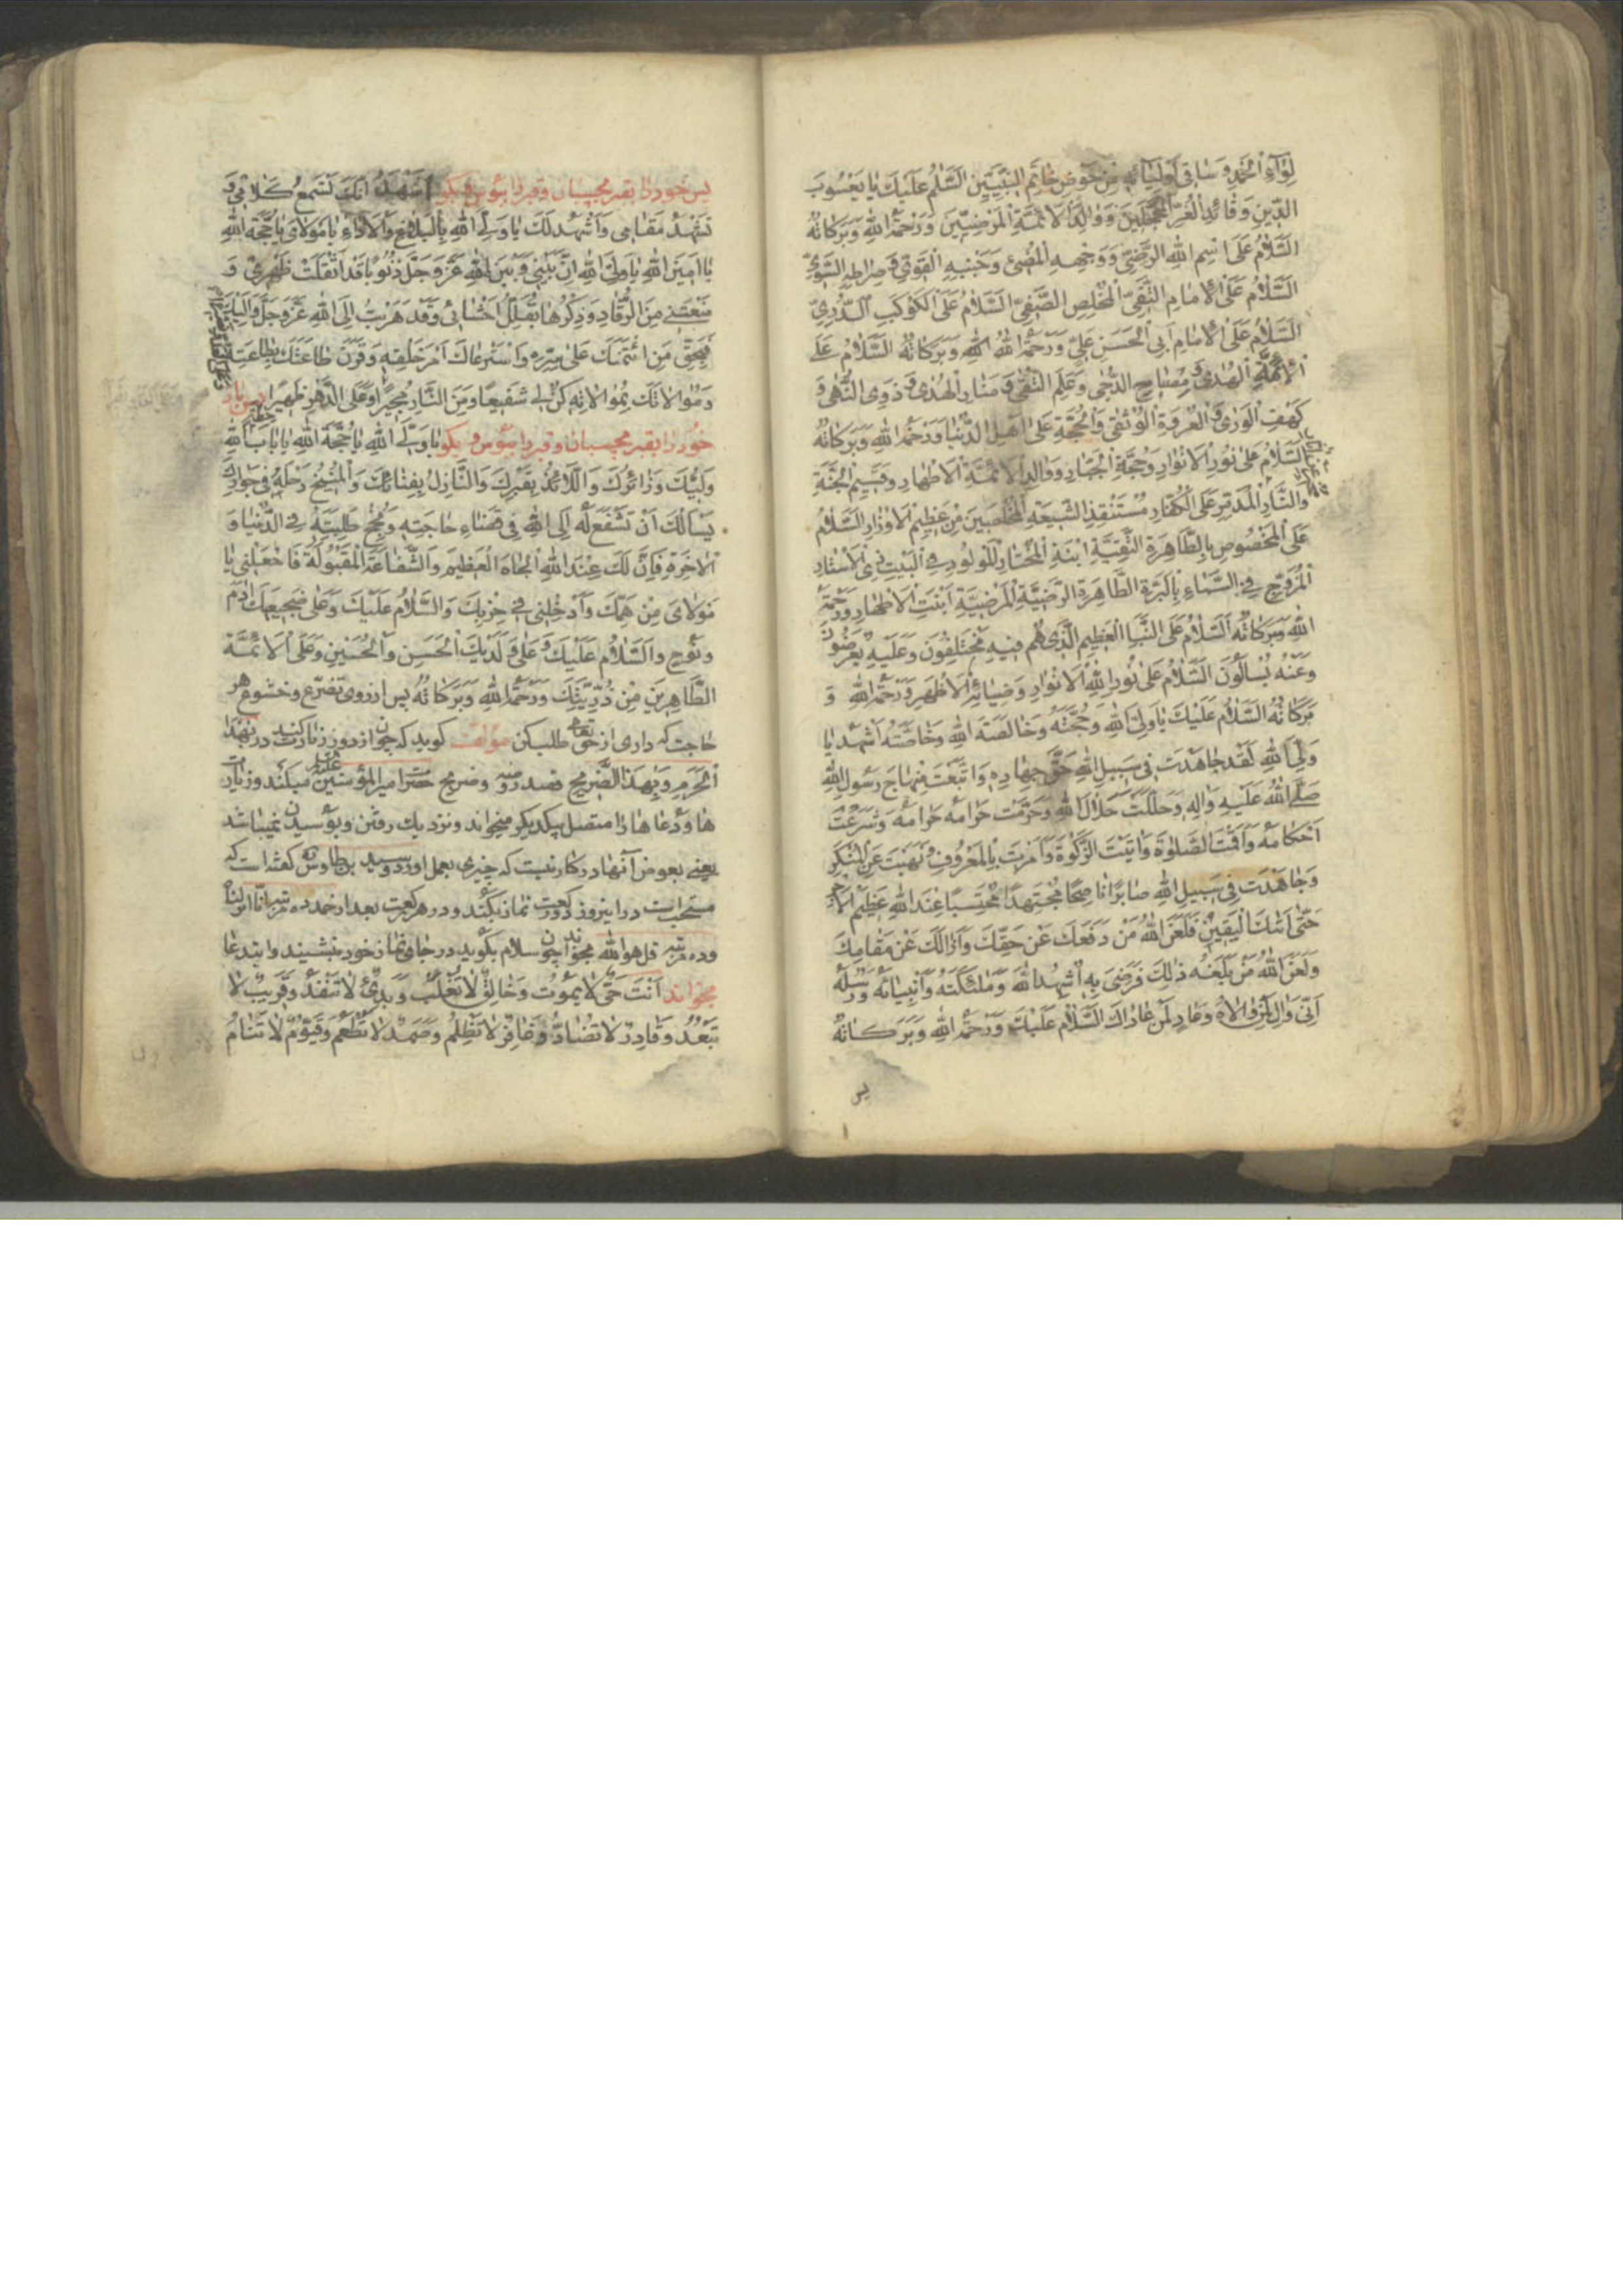 لِوَآءِ الْحَمْدِ وَ سٰاقِى اَوْلِيٰآئِهِ مِنْ حَوْضِ خٰاتَمِ النَّبِيّيٖنَ اَلسَّلٰمُ عَلَيْكَ يٰا يَعْسُوبَ
الدّٖينِ وَ قٰائِدَ الْغُرِّ الْمُحَجَّليٖنَ وَ وٰالِدَ الْاَئِمَّةِ الْمَرْضِيّيٖنَ وَ رَحْمَةُ اللهِ وَ بَرَكٰاتُهُ
اَلسَّلٰامُ عَلَى اسْمِ اللهِ الرَّضِيِّ وَ وَجْهِهِ الْمُضٖئِ وَ جَنْبِهِ الْقَوِيِّ وَ صِرٰاطِهِ السَّوِيِّ
اَلسَّلٰامُ عَلَى الْاِمٰامِ التَّقِيِّ الْمُخْلِصِ الصَّفِيِّ اَلسَّلٰامُ عَلَى الْكَوْكَبِ الدُّرِّيِّ
اَلسَّلٰامُ عَلَى الْاِمٰامِ اَبِى الْحَسَنِ عَلِيٍّ وَ رَحْمَةُ اللهِ وَ بَرَكٰاتُهُ اَلسَّلٰامُ عَلٰى
اَئِمَّةِ الْهُدٰى وَ مِصْبٰاحِ الدُّجٰى وَ عَلَمِ التُّقٰى وَ مَنٰارِ الْهُدٰى وَ ذَوِى النُّهٰى وَ
كَهْفِ الْوَرٰى وَ الْعُرْوَةِ الْوُثْقٰى وَ الْحُجَّةِ عَلٰى اَهْلِ الدُّنْيٰا وَ رَحْمَةُ اللهِ وَ بَرَكٰاتُهُ
اَلسَّلٰامُ عَلٰى نُورِ الْاَنْوٰارِ وَ حُجَّةِ الْجَبّٰارِ وَ وٰالِدِ الْاَئِمَّةِ الْاَطْهٰارِ وَ قَسٖيمِ الْجَنَّةِ
وَ النّٰارِ الْمُدَمِّرِ عَلَى الْكُفّٰارِ مُسْتَنْقِذِ الشّٖيعَةِ الْمُخْلَصٖينَ مِنْ عَظٖيمِ الْاَوْزٰارِ اَلسَّلٰامُ
عَلَى الْمَخْصُوصِ بِالطّٰاهِرَةِ التَّقِيَّةِ ابْنَةِ الْمُخْتٰارِ الْمَوْلُودِ فِى الْبَيْتِ ذِى الْاَسْتٰارِ
الْمُزَوَّجِ فِى السَّمٰاءِ بِالْبَرَّةِ الطّٰاهِرَةِ الرَّضِيَّةِ الْمَرْضِيَّةِ اِبْنَتِ الْاَطْهٰارِ وَ رَحْمَةُ
اللهِ وَ بَرَكٰاتُهُ اَلسَّلٰامُ عَلَى النَّبَاِ الْعَظٖيمِ الَّذٖى هُمْ فٖيهِ مُخْتَلِفُونَ وَ عَلَيْهِ يُعْرَضُونَ
وَ عَنْهُ يُسْاَلُونَ اَلسَّلٰامُ عَلٰى نُورِ اللهِ الْاَنْوٰارِ وَ ضِيٰائِهِ الْاَظْهَرِ وَ رَحْمَةُ اللهِ وَ
بَرَكٰاتُهُ اَلسَّلٰامُ عَلَيْكَ يٰا وَلِيَّ اللهِ وَ حُجَّتَهُ وَ خٰالِصَةَ اللهِ وَ خٰاصَّتَهُ اَشْهَدُ يٰا
وَلِيَّ اللهِ لَقَدْ جٰاهَدْتَ فٖى سَبٖيلِ اللهِ حَقَّ جِهٰادِهٖ وَ اتَّبَعْتَ مِنْهٰاجَ رَسُولِ اللهِ
صَلَّى اللهُ عَلَيْهِ وَ اٰلِهِ وَ حَلَّلْتَ حَلٰالَ اللهِ وَ حَرَّمْتَ حَرٰامَهُ وَ شَرَعْتَ
اَحْكٰامَهُ وَ اَقَمْتَ الصَّلٰوةَ وَ اٰتَيْتَ الزَّكٰوةَ وَ اَمَرْتَ بِالْمَعْرُوفِ وَ نَهَيْتَ عَنِ الْمُنْكَرِ
وَ جٰاهَدْتَ فٖى سَبٖيلِ اللهِ صٰابِرًا نٰاصِحًا مُجْتَهِدًا مُحْتَسِبًا عِنْدَ اللهِ عَظٖيمَ الْاَجْرِ
حَتّٰى اَتٰيكَ الْيَقٖينُ فَلَعَنَ اللهُ مَنْ دَفَعَكَ عَنْ حَقِّكَ وَ اَزٰالَكَ عَنْ مَقٰامِكَ
وَ لَعَنَ اللهُ مَنْ بَلَغَهُ ذٰلِكَ فَرَضِىَ بِهٖ اُشْهِدُ اللهَ وَ مَلٰئِكَتَهُ وَ اَنْبِيٰائَهُ وَ رُسُلَهُ
اَنّٖى وٰالٍ لِمَنْ وٰالاٰهُ وَ عٰادٍ لِمَنْ عٰادٰاكَ اَلسَّلٰامُ عَلَيْكَ وَ رَحْمَةُ اللهِ وَ بَرَكٰاتُهُ
پس
پس خود را بقبر بچسبان و قبر را ببوس و بگو اَشْهَدُ اَنَّكَ تَسْمَعُ كَلٰامٖى وَ
تَشْهَدُ مَقٰامٖى وَ اَشْهَدُ لَكَ يٰا وَلِيَّ اللهِ بِالْبَلٰاغِ وَ الْاَدٰاءِ يٰا مَوْلٰاىَ يٰا حُجَّةَ اللهِ
يٰا اَمٖينَ اللهِ يٰا وَلِيَّ اللهِ اِنَّ بَيْنٖى وَ بَيْنَ اللهِ عَزَّ وَ جَلَّ ذُنُوبًا قَدْ اَثْقَلَتْ ظَهْرٖى وَ
مَنَعَتْنٖى مِنَ الرُّقٰادِ وَ ذِكْرُهٰا يُقَلْقِلُ اَحْشٰائٖى وَ قَدْ هَرَبْتُ اِلَى اللهِ عَزَّ وَ جَلَّ وَ اِلَيْكَ
فَبِحَقِّ مَنِ ائْتَمَنَكَ عَلٰى سِرِّهٖ وَ اسْتَرْعٰاكَ اَمْرَ خَلْقِهٖ وَ قَرَنَ طٰاعَتَكَ بِطٰاعَتِهٖ
وَ مُوٰالٰاتَكَ بِمُوٰالٰاتِهٖ كُنْ لٖى شَفٖيعًا وَ مِنَ النّٰارِ مُجٖيرًا وَ عَلَى الدَّهْرِ ظَهٖيرًا پس باز
خود را بقبر بچسبان و قبر را ببوس و بگو يٰا وَلِيَّ اللهِ يٰا حُجَّةَ اللهِ يٰا بٰابَ حِطَّةِ اللهِ
وَلِيُّكَ وَ زٰائِرُكَ وَ اللّٰائِذُ بِقَبْرِكَ وَ النّٰازِلُ بِفِنٰائِكَ وَ الْمُنٖيخُ رَحْلَهُ فٖى جِوٰارِكَ
يَسْاَلُكَ اَنْ تَشْفَعَ لَهُ اِلَى اللهِ فٖى قَضٰاءِ حٰاجَتِهٖ وَ نُجْحِ طَلِبَتِهٖ فِى الدُّنْيٰا وَ
الْاٰخِرَةِ فَاِنَّ لَكَ عِنْدَ اللهِ الْجٰاهَ الْعَظٖيمَ وَ الشَّفٰاعَةَ الْمَقْبُولَةَ فَاجْعَلْنٖى يٰا
مَوْلٰاىَ مِنْ هَمِّكَ وَ اَدْخِلْنٖى فٖى حِزْبِكَ وَ السَّلٰامُ عَلَيْكَ وَ عَلٰى ضَجٖيعَيْكَ اٰدَمَ
وَ نُوحٍ وَ السَّلٰامُ عَلَيْكَ وَ عَلٰى وَلَدَيْكَ الْحَسَنِ وَ الْحُسَيْنِ وَ عَلَى الْاَئِمَّةِ
الطّٰاهِرٖينَ مِنْ ذُرِّيَّتِكَ وَ رَحْمَةُ اللهِ وَ بَرَكٰاتُهُ پس از روى تضرّع و خشوع هر
حاجت كه دارى از حق تعالى طلب كن مؤلف گويد كه چون از دور زيارت كنند در بهٰذا
الْحَرَمِ وَ بِهٰذَا الضَّرٖيحِ قصد روضه و ضريح حضرت اميرالمؤمنين عليه السلم ميكنند و زيارت
ها و دعاها را متصل بيكديگر ميخواند و نزديك رفتن و بوسيدن نميباشد
يعنى بعوض آنها در كار نيست كه چيزى بعمل اورد و سيد بن طاوس گفته است كه
مستحبست در اين روز دو ركعت نماز بكند و در هر ركعت بعد از حمد ده مرتبه انّا انزلناه
و ده مرتبه قل هو الله بخواند چون سلام بگويد در جاى نماز خود بنشيند و ابتدا
بخواند اَنْتَ حَىٌّ لٰا يَمُوتُ وَ خٰالِقٌ لٰا تُغْلَبُ وَ بَدِىٌ لٰا تَنْفَدُ وَ قَرٖيبٌ لٰا
تَبْعُدُ وَ قٰادِرٌ لٰا تُضٰادُّ وَ غٰافِرٌ لٰا تَظْلِمُ وَ صَمَدٌ لٰا تُطْعَمُ وَ قَيُّومٌ لٰا تَنٰامُ